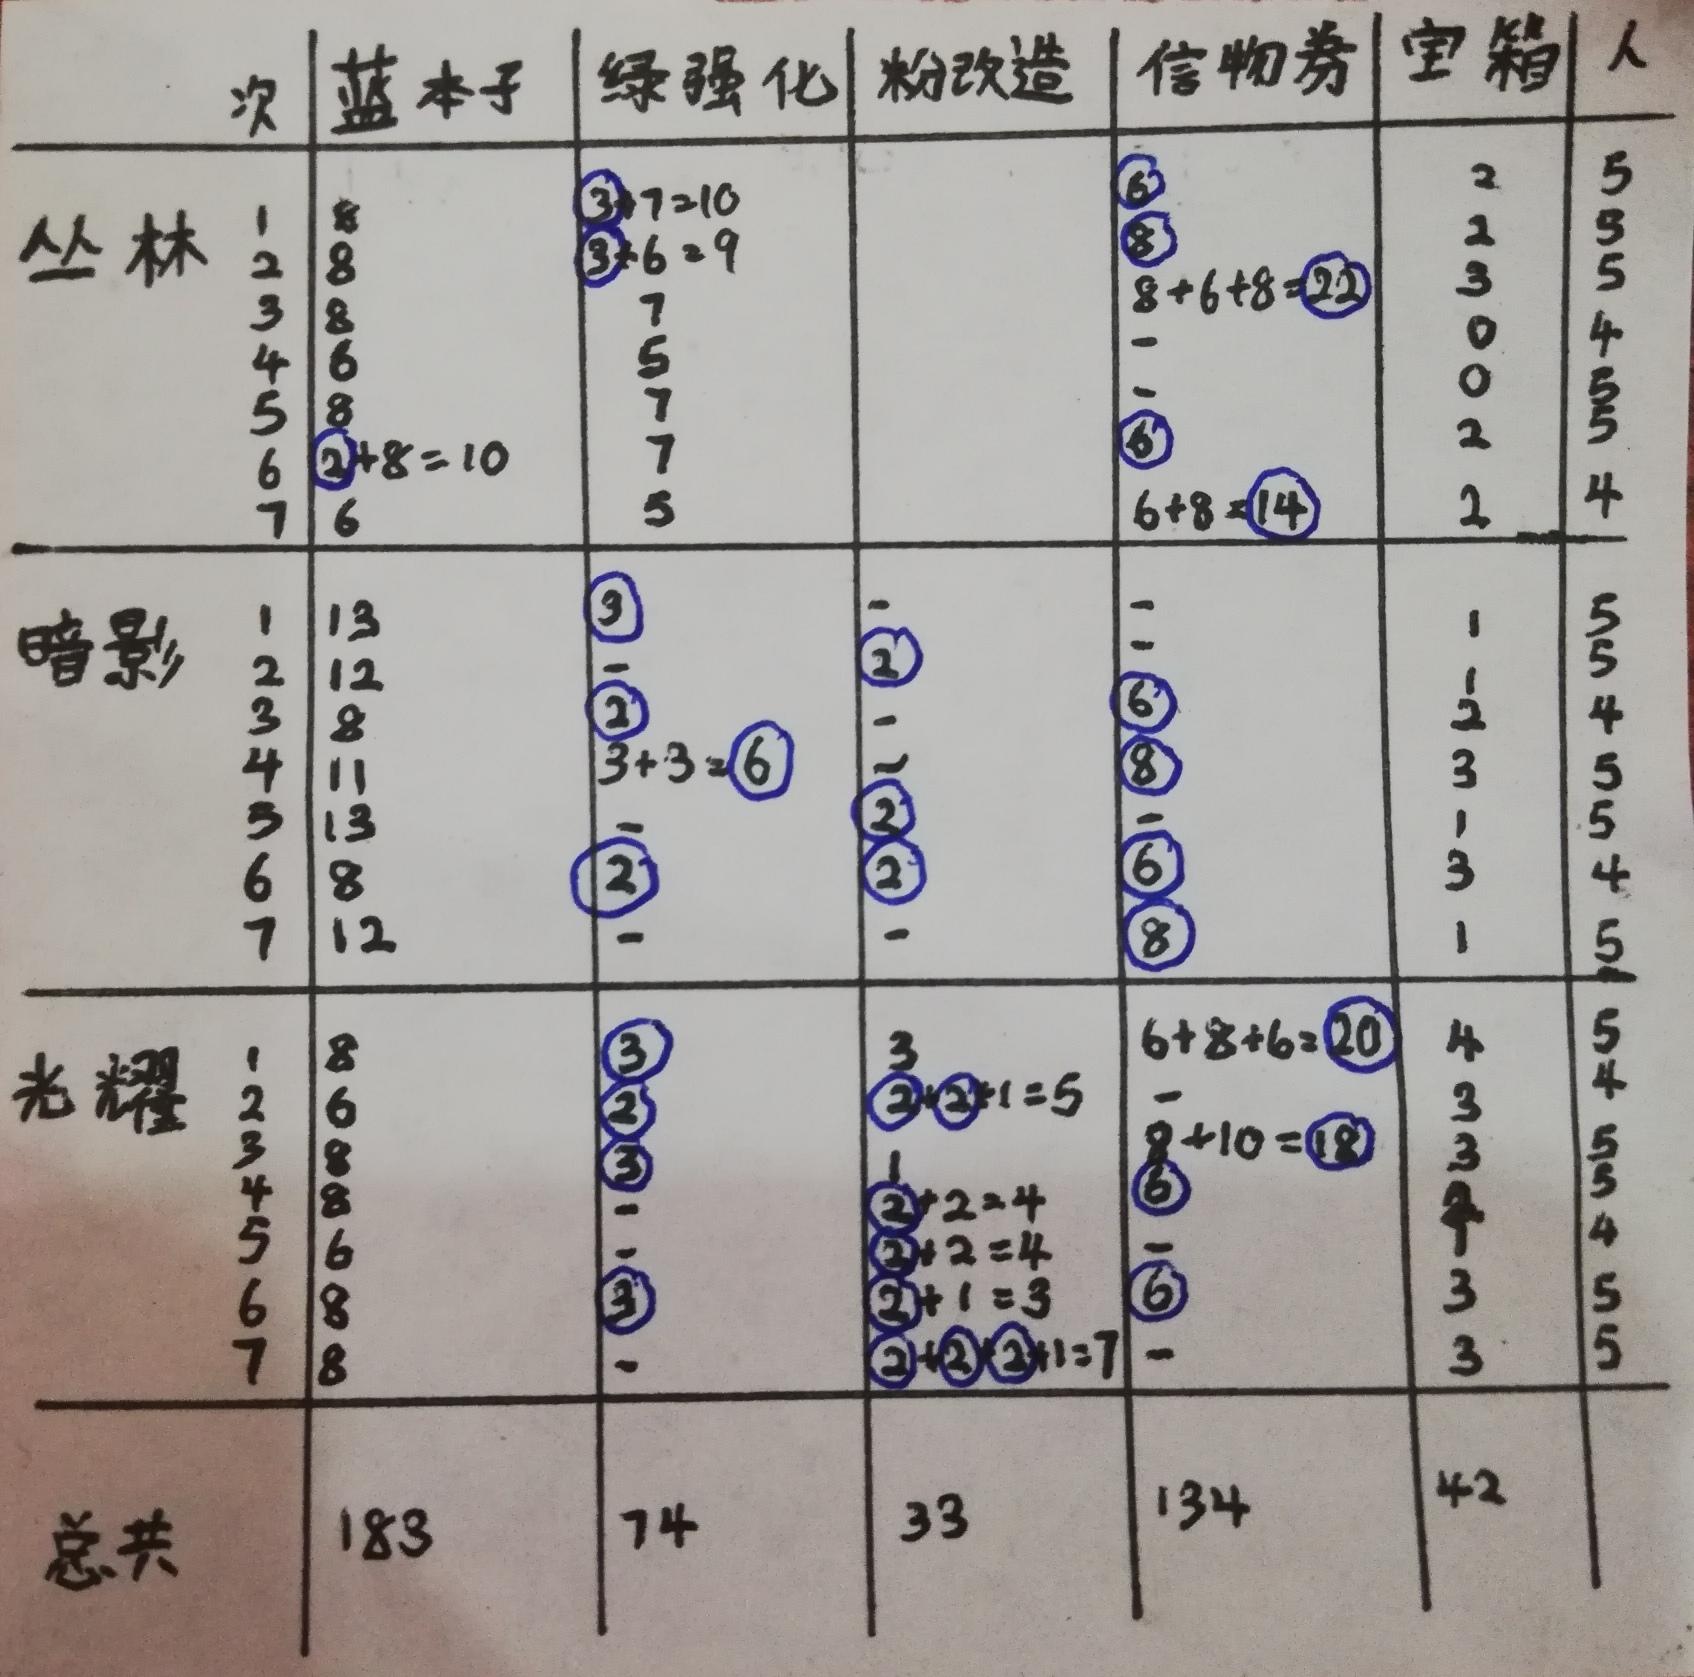 次 蓝本子 绿强化 粉改造 信物券 宝箱 人
丛林 1 8 3+7=10 6 2 5
2 8 3+6=9 8 2 5
3 8 7 8+6+8=22 3 5
4 6 5 - 0 4
5 8 7 - 0 5
6 2+8=10 7 6 2 5
7 6 5 6+8=14 2 4
暗影 1 13 3 - - 1 5
2 12 - 2 - 1 5
3 8 2 - 6 2 4
4 11 3+3=6 - 8 3 5
5 13 - 2 - 1 5
6 8 2 2 6 3 4
7 12 - - 8 1 5
光耀 1 8 3 3 6+8+6=20 4 5
2 6 2 2+2+1=5 - 3 4
3 8 3 1 8+10=18 3 5
4 8 - 2+2=4 6 5
5 6 - 2+2=4 - 1 4
6 8 3 2+1=3 6 3 5
7 8 - 2+2+2+1=7 - 3 5
总共 183 74 33 134 42